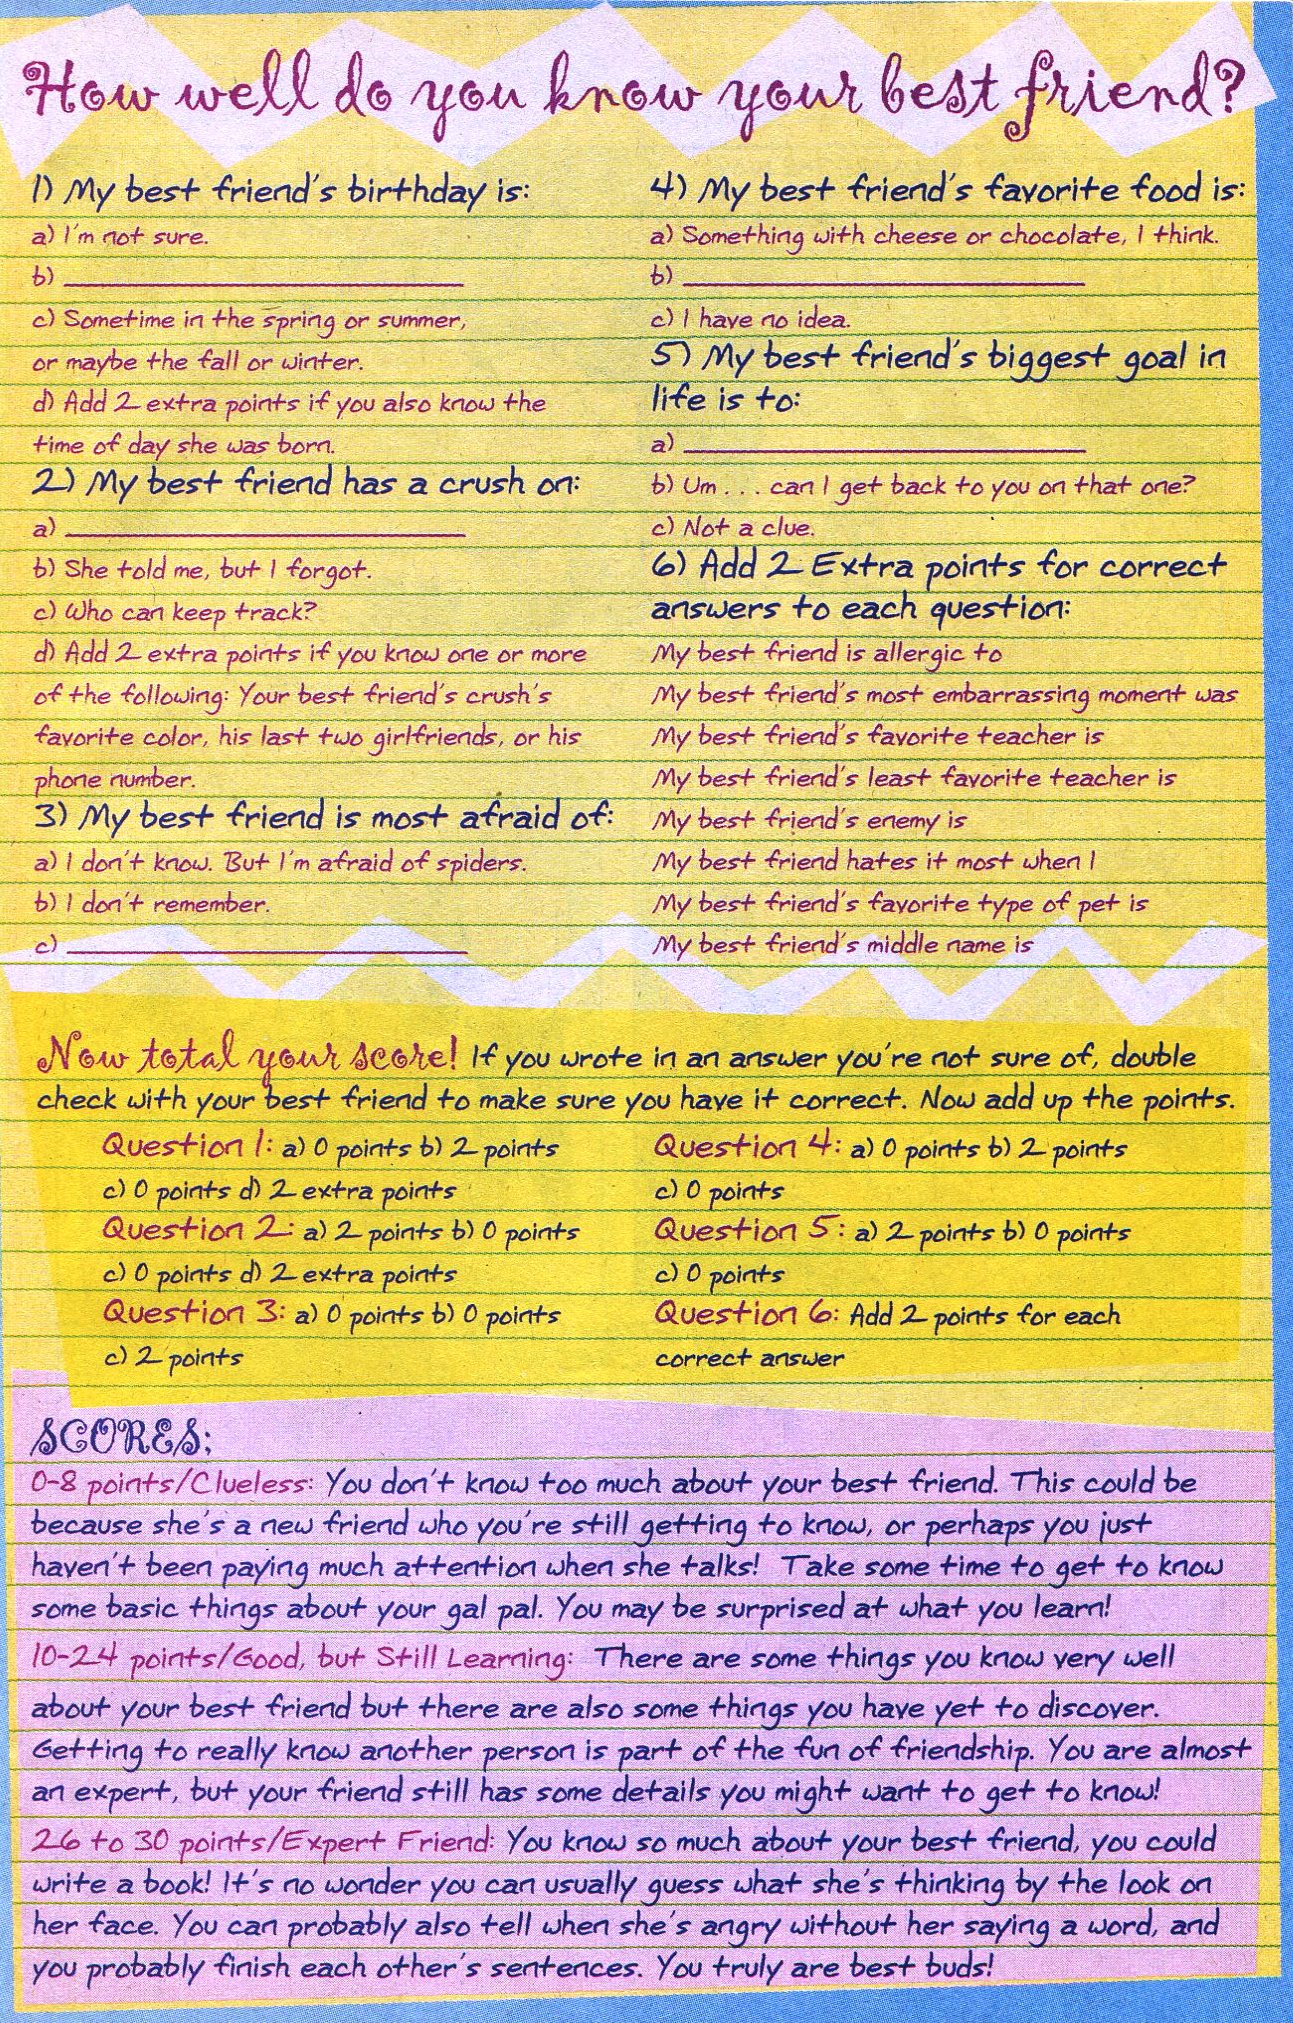 How well do you know your best friend?
1) My best friend's birthday is:
a) I'm not sure.
b)
c) Sometime in the spring or summer,
or maybe the fall or winter.
d) Add 2 extra points if you also know the
time of day she was born.
2) My best friend has a crush on:
a)
b) She told me, but I forgot.
c) Who can keep track?
d) Add 2 extra points if you know one or more
of the following: Your best friend's crush's
favorite color, his last two girlfriends, or his
phone number.
3) My best friend is most afraid of:
a) I don't know. But I'm afraid of spiders.
b) I don't remember.
c)
4) My best friend's favorite food is:
a) Something with cheese or chocolate, I think.
b)
c) I have no idea.
5) My best friend's biggest goal in
life is to:
a)
b) Um . . . can I get back to you on that one?
c) Not a clue.
6) Add 2 Extra points for correct
answers to each question:
My best friend is allergic to
My best friend's most embarrassing moment was
My best friend's favorite teacher is
My best friend's least favorite teacher is
My best friend's enemy is
My best friend hates it most when I
My best friend's favorite type of pet is
My best friend's middle name is
Now total your score! If you wrote in an answer you're not sure of, double
check with your best friend to make sure you have it correct. Now add up the points.
Question 1: a) 0 points b) 2 points
c) 0 points d) 2 extra points
Question 2: a) 2 points b) 0 points
c) 0 points d) 2 extra points
Question 3: a) 0 points b) 0 points
c) 2 points
Question 4: a) 0 points b) 2 points
c) 0 points
Question 5: a) 2 points b) 0 points
c) 0 points
Question 6: Add 2 points for each
correct answer
SCORES:
0-8 points/Clueless: You don't know too much about your best friend. This could be
because she's a new friend who you're still getting to know, or perhaps you just
haven't been paying much attention when she talks! Take some time to get to know
some basic things about your gal pal. You may be surprised at what you learn!
10-24 points/Good, but Still Learning: There are some things you know very well
about your best friend but there are also some things you have yet to discover.
Getting to really know another person is part of the fun of friendship. You are almost
an expert, but your friend still has some details you might want to get to know!
26 to 30 points/Expert Friend: You know so much about your best friend, you could
write a book! It's no wonder you can usually guess what she's thinking by the look on
her face. You can probably also tell when she's angry without her saying a word, and
you probably finish each other's sentences. You truly are best buds!